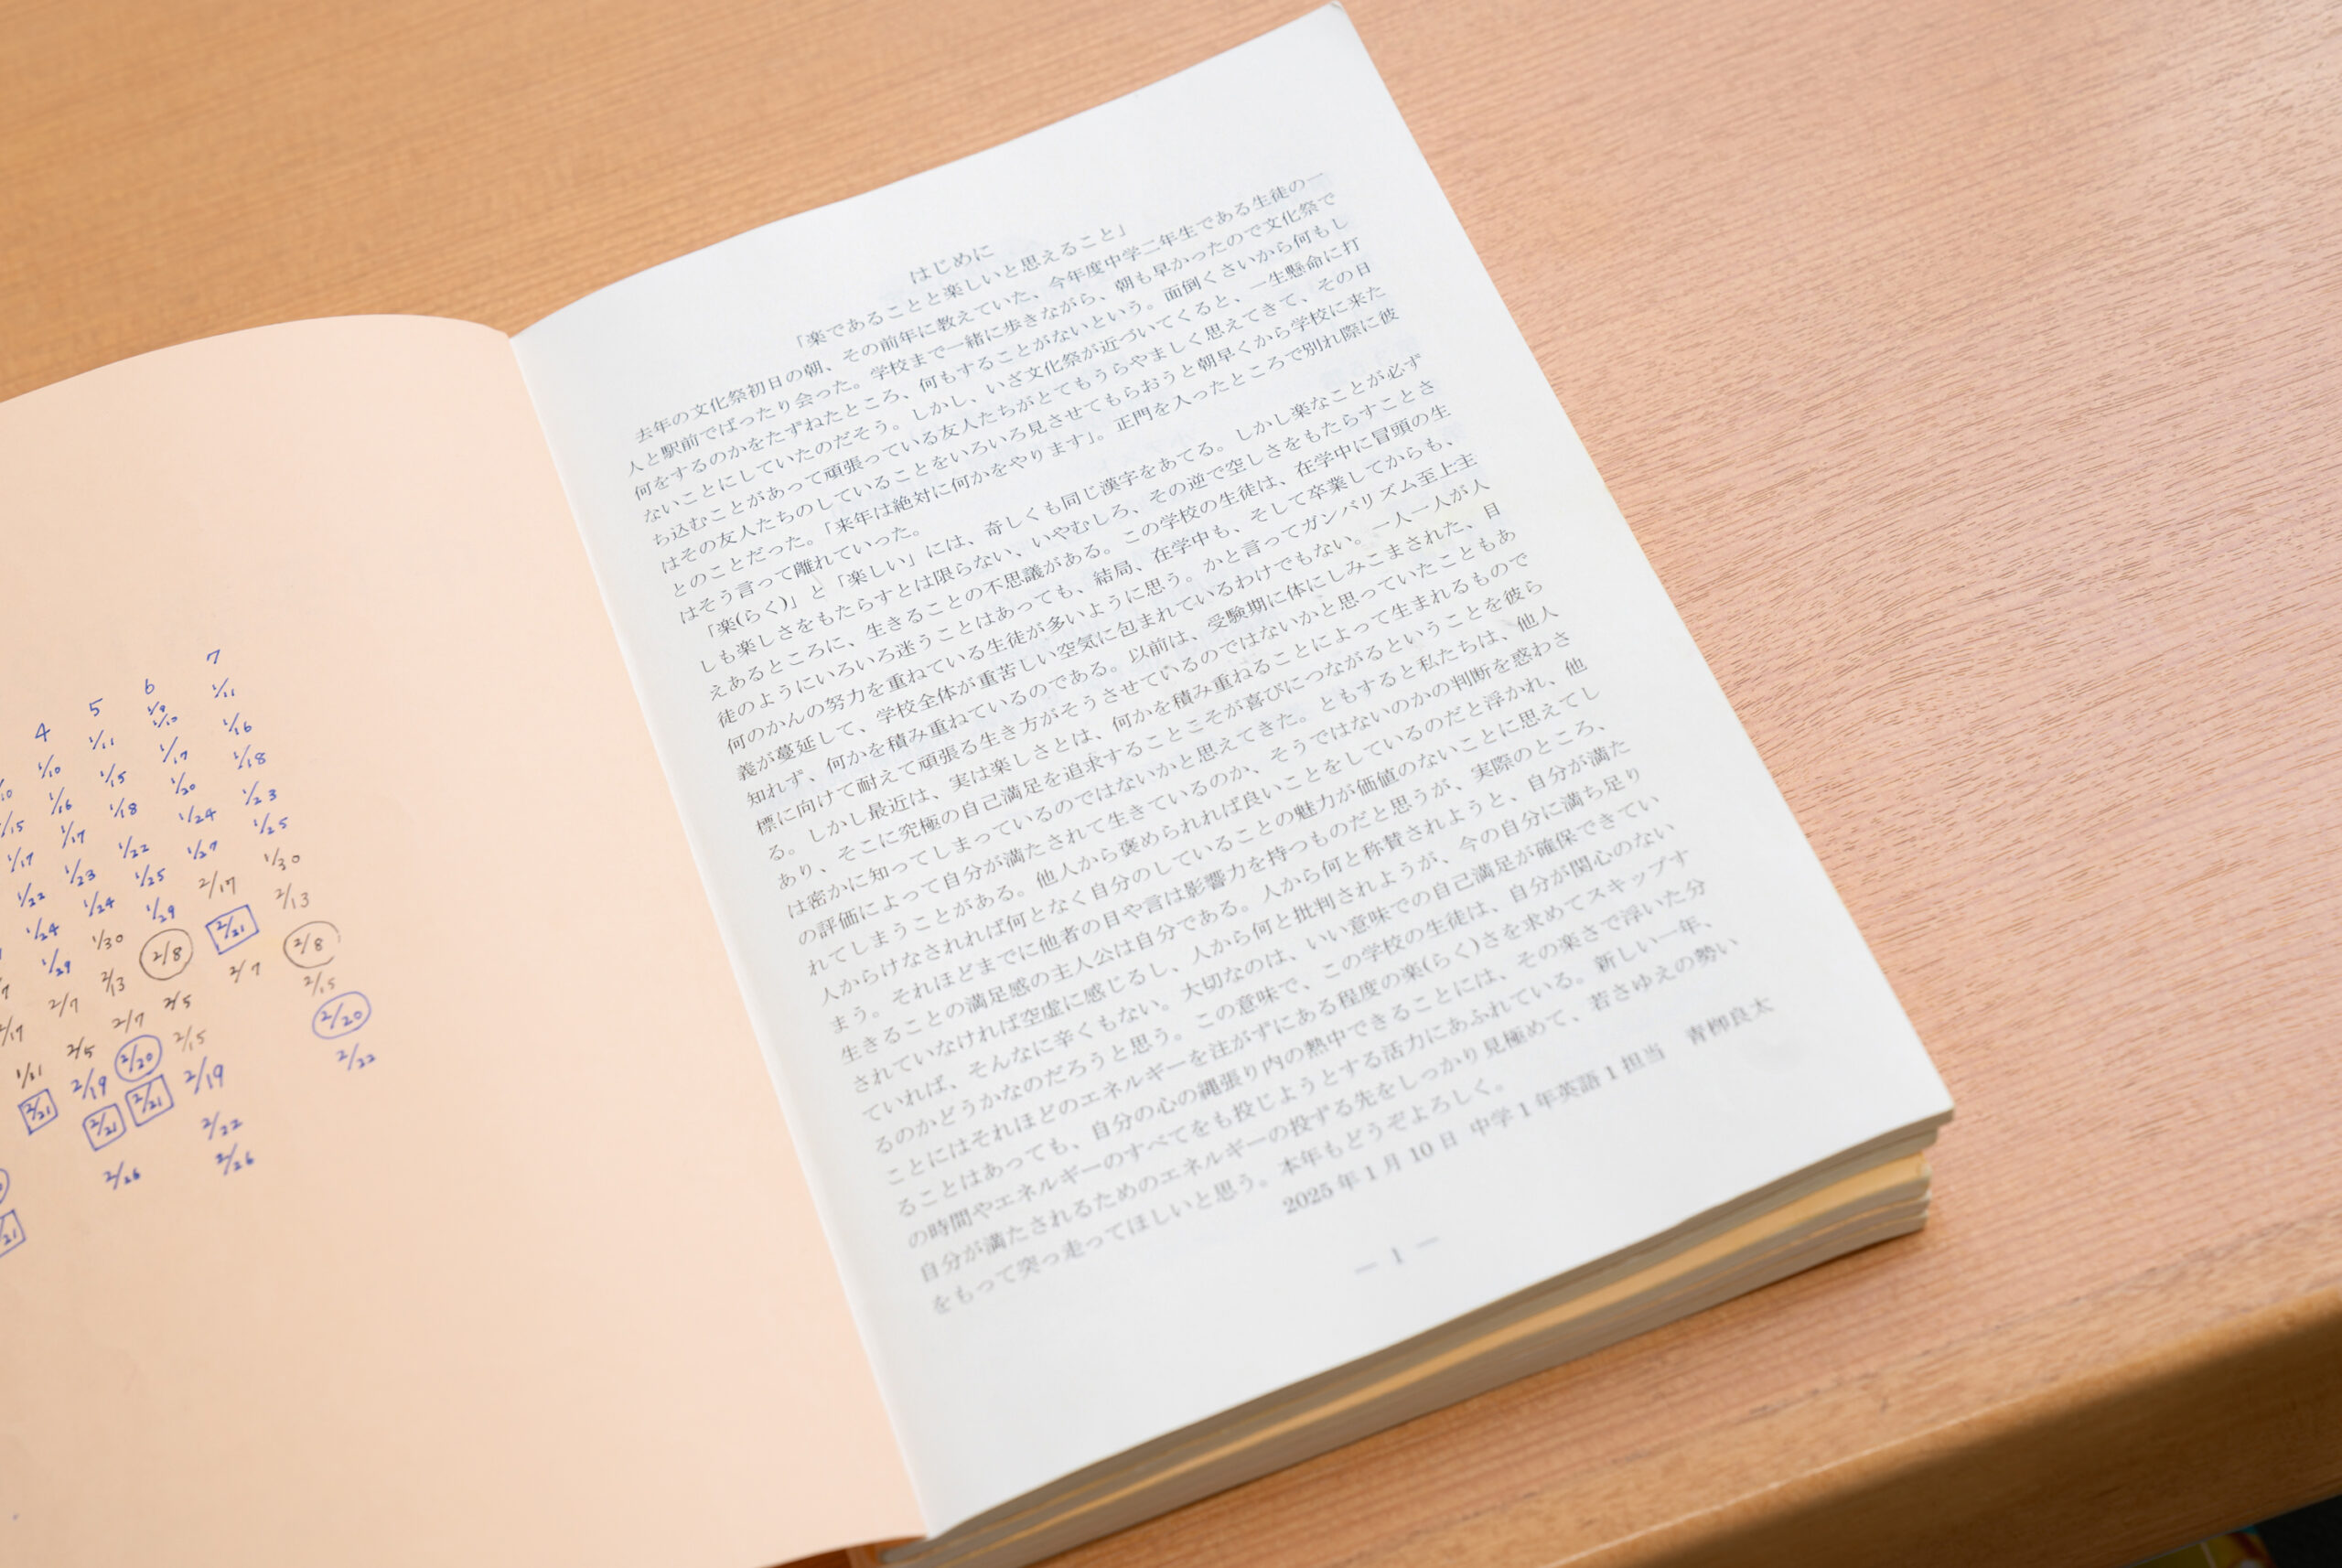 4
1/10
1/16
1/17
1/23
1/24
1/30
2/13
2/7
2/20
2/21
5
1/11
1/15
1/18
1/22
1/25
1/29
2/8
2/5
2/15
2/19
2/22
2/26
6
1/9
1/10
1/17
1/20
1/24
1/27
2/17
2/21
2/7
7
1/11
1/16
1/18
1/23
1/25
1/30
2/13
2/8
2/15
2/20
2/22
1/22
1/24
1/29
2/7
2/5
2/19
2/21
2/26
1/15
1/17
2/17
1/21
2/21
はじめに
「楽であることと楽しいと思えること」
去年の文化祭初日の朝、その前年に教えていた、今年度中学二年生である生徒の一
人と駅前でばったり会った。学校まで一緒に歩きながら、朝も早かったので文化祭で
何をするのかをたずねたところ、何もすることがないという。面倒くさいから何もし
ないことにしていたのだそう。しかし、いざ文化祭が近づいてくると、一生懸命に打
ち込むことがあって頑張っている友人たちがとてもうらやましく思えてきて、その日
はその友人たちのしていることをいろいろ見させてもらおうと朝早くから学校に来た
とのことだった。「来年は絶対に何かをやります」。正門を入ったところで別れ際に彼
はそう言って離れていった。
「楽(らく)」と「楽しい」には、奇しくも同じ漢字をあてる。しかし楽なことが必ず
しも楽しさをもたらすとは限らない、いやむしろ、その逆で空しさをもたらすことさ
えあるところに、生きることの不思議がある。この学校の生徒は、在学中に冒頭の生
徒のようにいろいろ迷うことはあっても、結局、在学中も、そして卒業してからも、
何のかんの努力を重ねている生徒が多いように思う。かと言ってガンバリズム至上主
義が蔓延して、学校全体が重苦しい空気に包まれているわけでもない。一人一人が人
知れず、何かを積み重ねているのである。以前は、受験期に体にしみこまされた、目
標に向けて耐えて頑張る生き方がそうさせているのではないかと思っていたこともあ
る。しかし最近は、実は楽しさとは、何かを積み重ねることによって生まれるもので
あり、そこに究極の自己満足を追求することこそが喜びにつながるということを彼ら
は密かに知ってしまっているのではないかと思えてきた。ともすると私たちは、他人
の評価によって自分が満たされて生きているのか、そうではないのかの判断を惑わさ
れてしまうことがある。他人から褒められれば良いことをしているのだと浮かれ、他
人からけなされれば何となく自分のしていることの魅力が価値のないことに思えてし
まう。それほどまでに他者の目や言は影響力を持つものだと思うが、実際のところ、
生きることの満足感の主人公は自分である。人から何と称賛されようと、自分が満た
されていなければ空虚に感じるし、人から何と批判されようが、今の自分に満ち足り
ていれば、そんなに辛くもない。大切なのは、いい意味での自己満足が確保できてい
るのかどうかなのだろうと思う。この意味で、この学校の生徒は、自分が関心のない
ことにはそれほどのエネルギーを注がずにある程度の楽(らく)さを求めてスキップす
ることはあっても、自分の心の縄張り内の熱中できることには、その楽さで浮いた分
の時間やエネルギーのすべてをも投じようとする活力にあふれている。新しい一年、
自分が満たされるためのエネルギーの投ずる先をしっかり見極めて、若さゆえの勢い
をもって突っ走ってほしいと思う。本年もどうぞよろしく。
2025 年 1 月 10 日 中学 1 年英語 1 担当 青柳良太
— 1 —